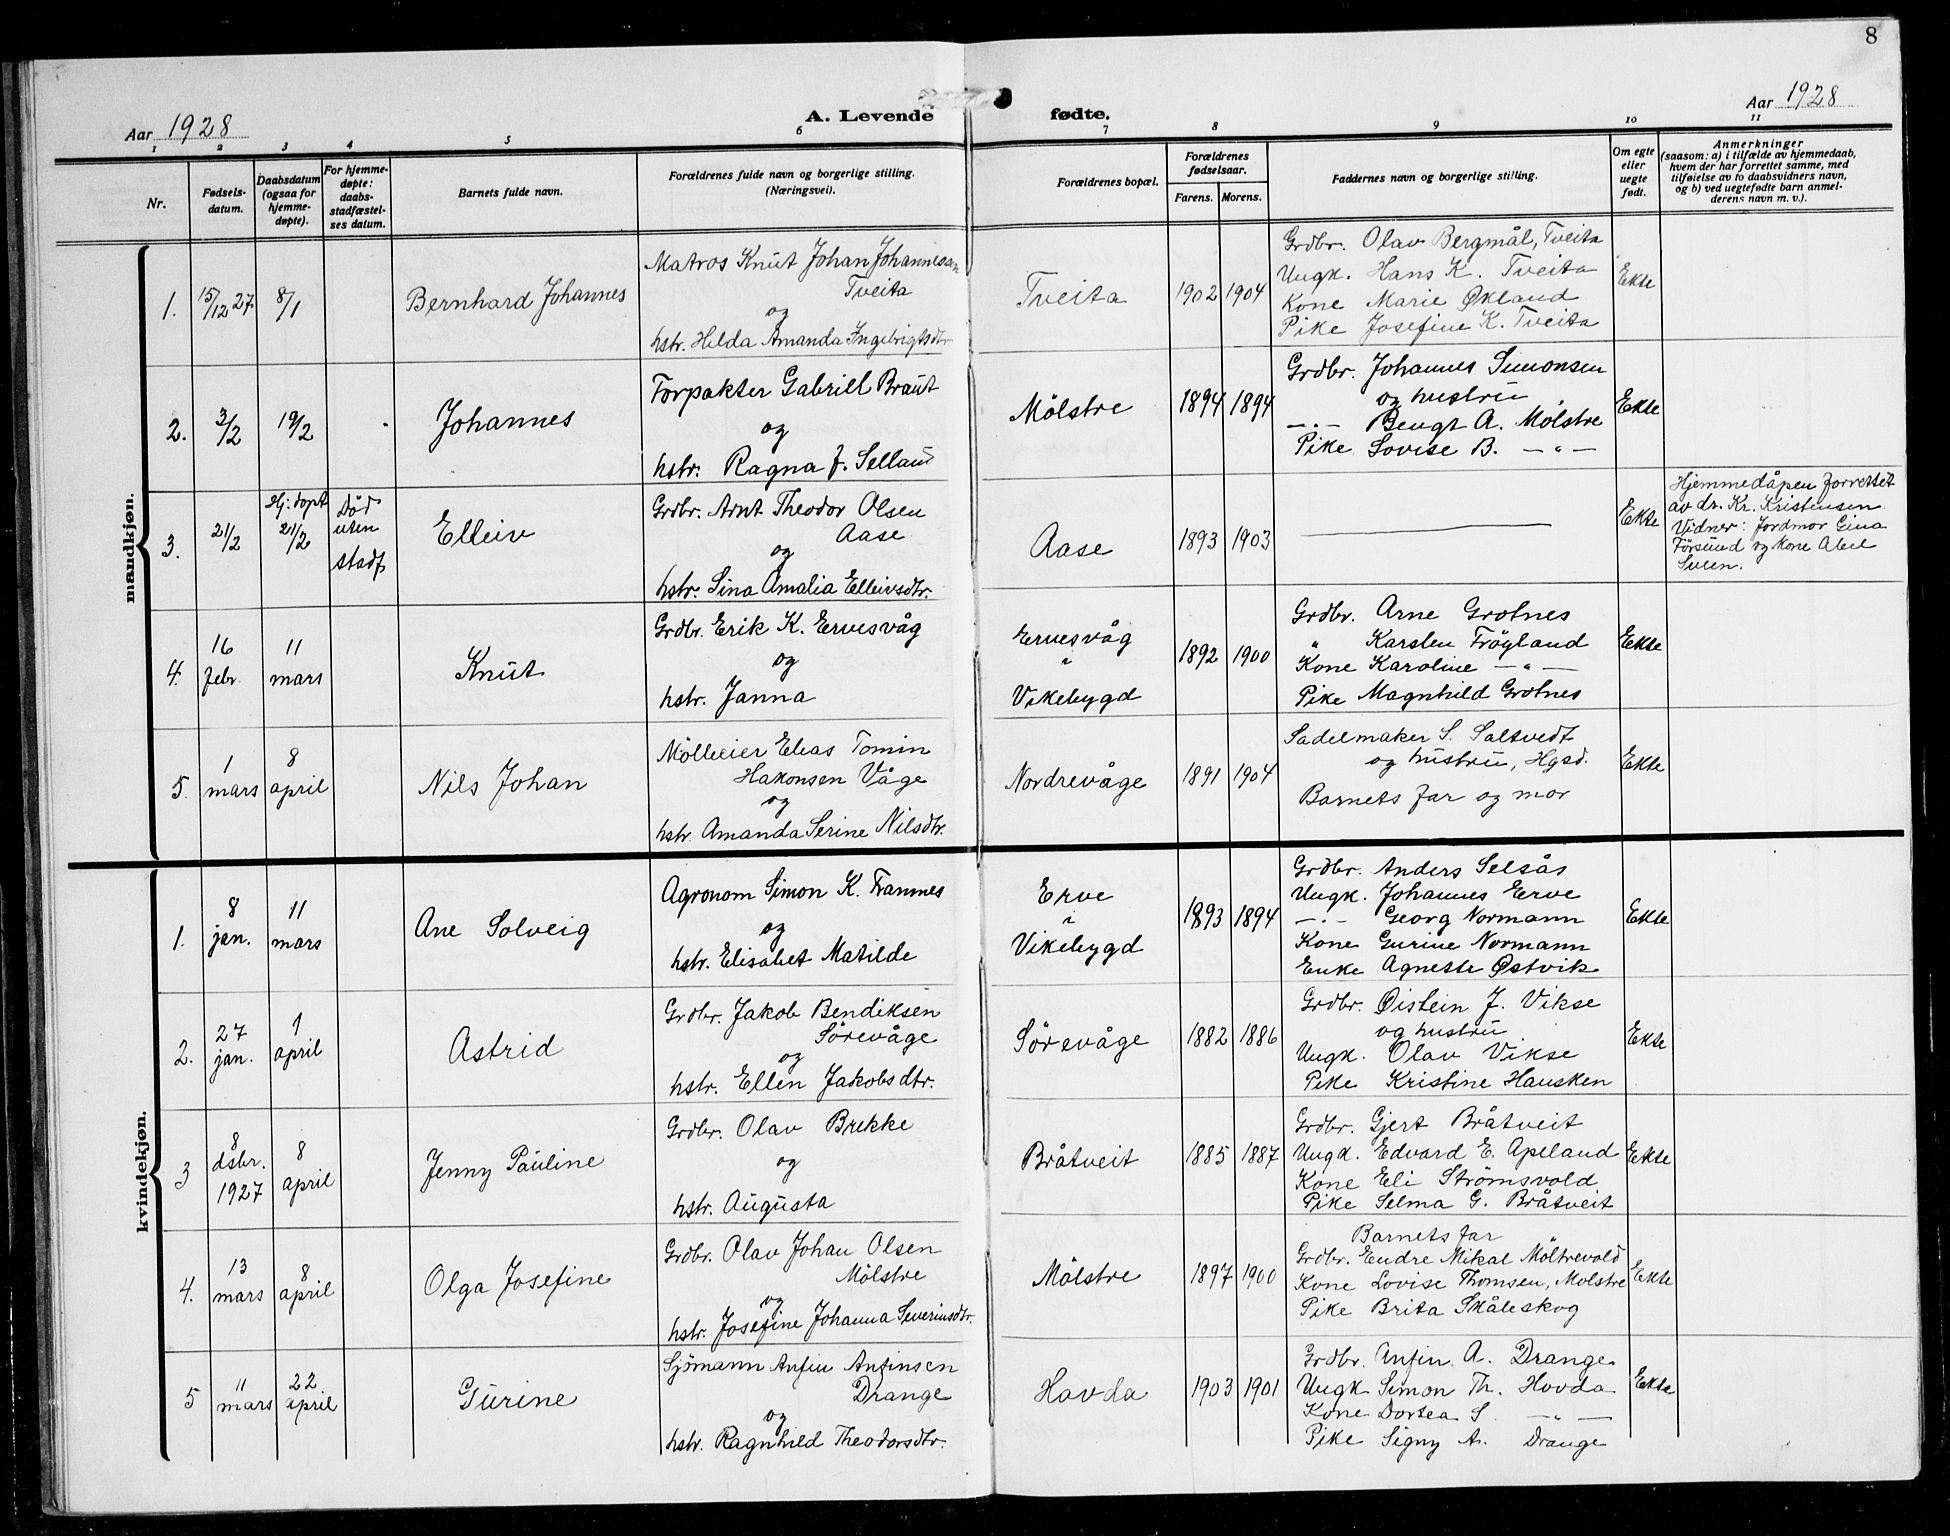 8
Aar 1928
A. Levende fødte.
Aar 1928
1 2 3 4 5 6 7 8 9 10 11
Nr.
Fødsels-
datum.
Daabsdatum
(ogsaa for
hjemme-
døpte).
For hjemme-
døpte:
daabs-
stadfæstel-
ses datum.
Barnets fulde navn.
Forældrenes fulde navn og borgerlige stilling.
(Næringsvei).
Forældrenes bopæl.
Forældrenes
fødselsaar.
Farens. Morens.
Faddernes navn og borgerlige stilling.
Om egte
eller
uegte
født.
Anmerkninger
(saasom: a) i tilfælde av hjemmedaab,
hvem der har forrettet samme, med
tilføielse av to daabsvidners navn,
og b) ved uegtefødte barn anmel-
derens navn m. v.).
mandkjøn.
1.
15/12 27.
8/1
Bernhard Johannes
Matros Knut Johan Johannessen
Tveita
og
hstr. Hilda Amanda Ingebrigtsdtr
Tveita
1902 1904
Grdbr. Olav Bergmål, Tveita
Ungk. Hans K. Tveita
Kone Marie Økland
Pike Josefine K. Tveita
Ekte
2.
3/2
19/2
Johannes
Forpakter Gabriel Braut
og
hstr. Ragna J. Selland
Mölstre
1894 1894
Grdbr. Johannes Simonsen
og hustru
—"— Bengt A. Mölstre
Pike Lovise B. —"—
Ekte
3.
21/2
Hj: döpt
21/2
Död
uten
stadf.
Elleiv
Grdbr. Arnt Theodor Olsen
Aase
og
hstr. Sina Amalia Elleivsdtr.
Aase
1893 1903
Ekte
Hjemmedåpen forrettet
av dr. Kr. Kristensen
Vidner: Jordmor Gina
Försund og kone Abel
Sveen.
4.
16
febr.
11
mars
Knut
Grdbr. Erik K. Ervesvåg
og
hstr. Janna
Ervesvåg
i
Vikebygd
1892 1900
Grdbr. Arne Grotnes
" Karsten Fröyland
Kone Karoline —"—
Pike Magnhild Grotnes
Ekte
5.
1
mars
8
april
Nils Johan
Mölleier Elias Tomin
Hakonsen Våge
og
hstr. Amanda Serine Nilsdtr.
Nordrevåge
1891 1904
Sadelmaker S. Saltvedt
og hustru, Hgsd.
Barnets far og mor
Ekte
kvindekjøn.
1.
8
jan.
11
mars
Ane Solveig
Agronom Simon K. Frannes
og
hstr. Elisabet Matilde
Erve
i
Vikebygd
1893 1894
Grdbr. Anders Selsås
Ungk. Johannes Erve
—"— Georg Normann
Kone Gurine Normann
Enke Agnete Østvik
Ekte
2.
27
jan.
1
april
Astrid
Grdbr. Jakob Bendiksen
Sörevåge
og
hstr. Ellen Jakobsdtr.
Sörevåge
1882 1886
Grdbr. Øistein J. Vikse
og hustru
Ungk. Olav Vikse
Pike Kristine Hausken
Ekte
3
8
dsbr.
1927
8
april
Jenny Pauline
Grdbr. Olav Brekke
og
hstr. Augusta
Bråtveit
1885 1887
Grdbr. Gjert Bråtveit
Ungk. Edvard E. Apeland
Kone Eli Strömsvold
Pike Selma G. Bråtveit
Ekte
4.
13
mars
8
april
Olga Josefine
Grdbr. Olav Johan Olsen
Mölstre
og
hstr. Josefine Johanna Severinsdtr.
Mölstre
1897 1900
Barnets far
Grdbr. Endre Mikal Möltrevold
Kone Lovise Thomsen, Molstre
Pike Brita Skåleskog
Ekte
5
11
mars
22
april
Gurine
Sjömann Anfin Anfinsen
Drange
og
hstr. Ragnhild Theodorsdtr.
Hovda
1903 1901
Grdbr. Anfin A. Drange
Ungk Simon Th. Hovda
Kone Dortea S —"—
Pike Signy A. Drange
Ekte